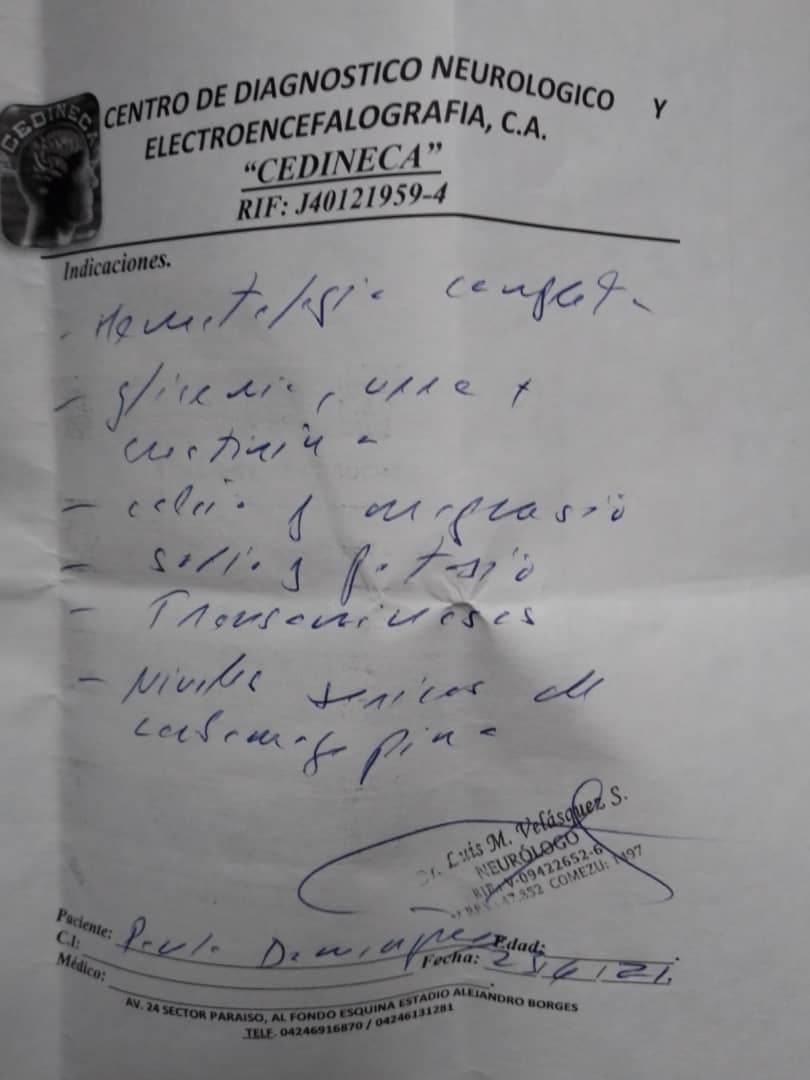 CEDINECA
CENTRO DE DIAGNOSTICO NEUROLOGICO Y
ELECTROENCEFALOGRAFIA, C.A.
“CEDINECA”
RIF: J40121959-4
Indicaciones.
- Hematologia completa
- glicemia, urea y
creatinina
- calcio y magnasio
- sodio y potasio
- Transaminasas
- Niveles sericos de
carbamazepina
Dr. Luis M. Velásquez S.
NEURÓLOGO
RIF: V-09422652-6
47.852 COMEZU: 1497
Paciente: Paula Dominguez Edad:
C.I: Fecha:
Médico:
AV. 24 SECTOR PARAISO, AL FONDO ESQUINA ESTADIO ALEJANDRO BORGES
TELF. 04246916870 / 04246131281